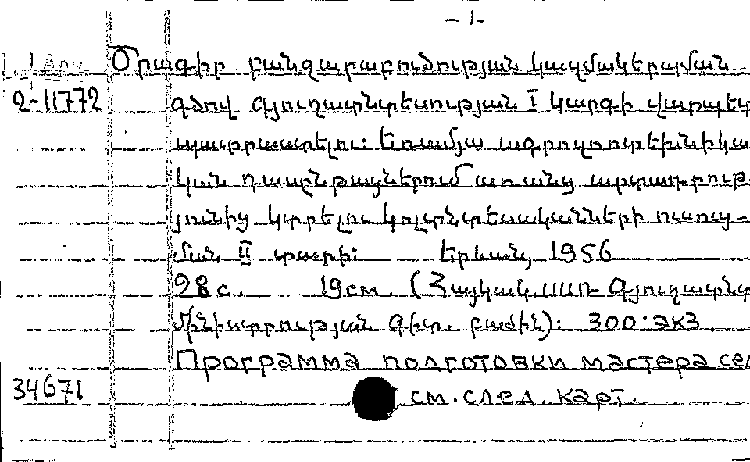 - 1 -
Ծրագիր բանջարաբուծության կազմակերպման
2-11772 գծով գյուղատնտեսության I կարգի վարպետ
պատրաստելու: Եռամյա ագրոզոոտեխնիկա
կան դասընթացներում առանց արտադրութ
յունից կտրելու կոլտնտեսականների ուսուց-
ման II տարի: Երևան, 1956
28 с. 19 см. (Հայկական ՍՍՌ Գյուղատնտ
մինիստրության գիտ. բաժին): 300 экз
Программа подготовки мастера сел
34671 см. след. карт.